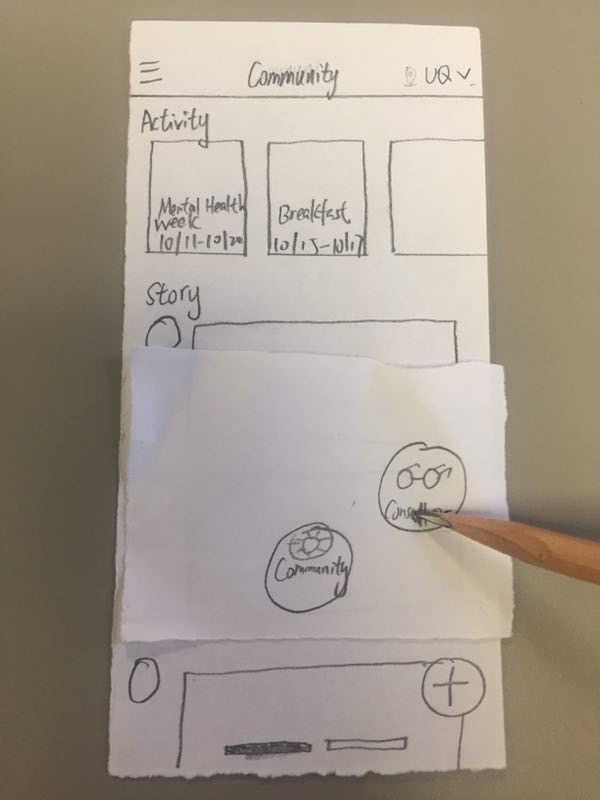 Community
UQ
Activity
Mental Health
Week
10/11-10/20
Breakfast
10/15-10/17
Story
Community